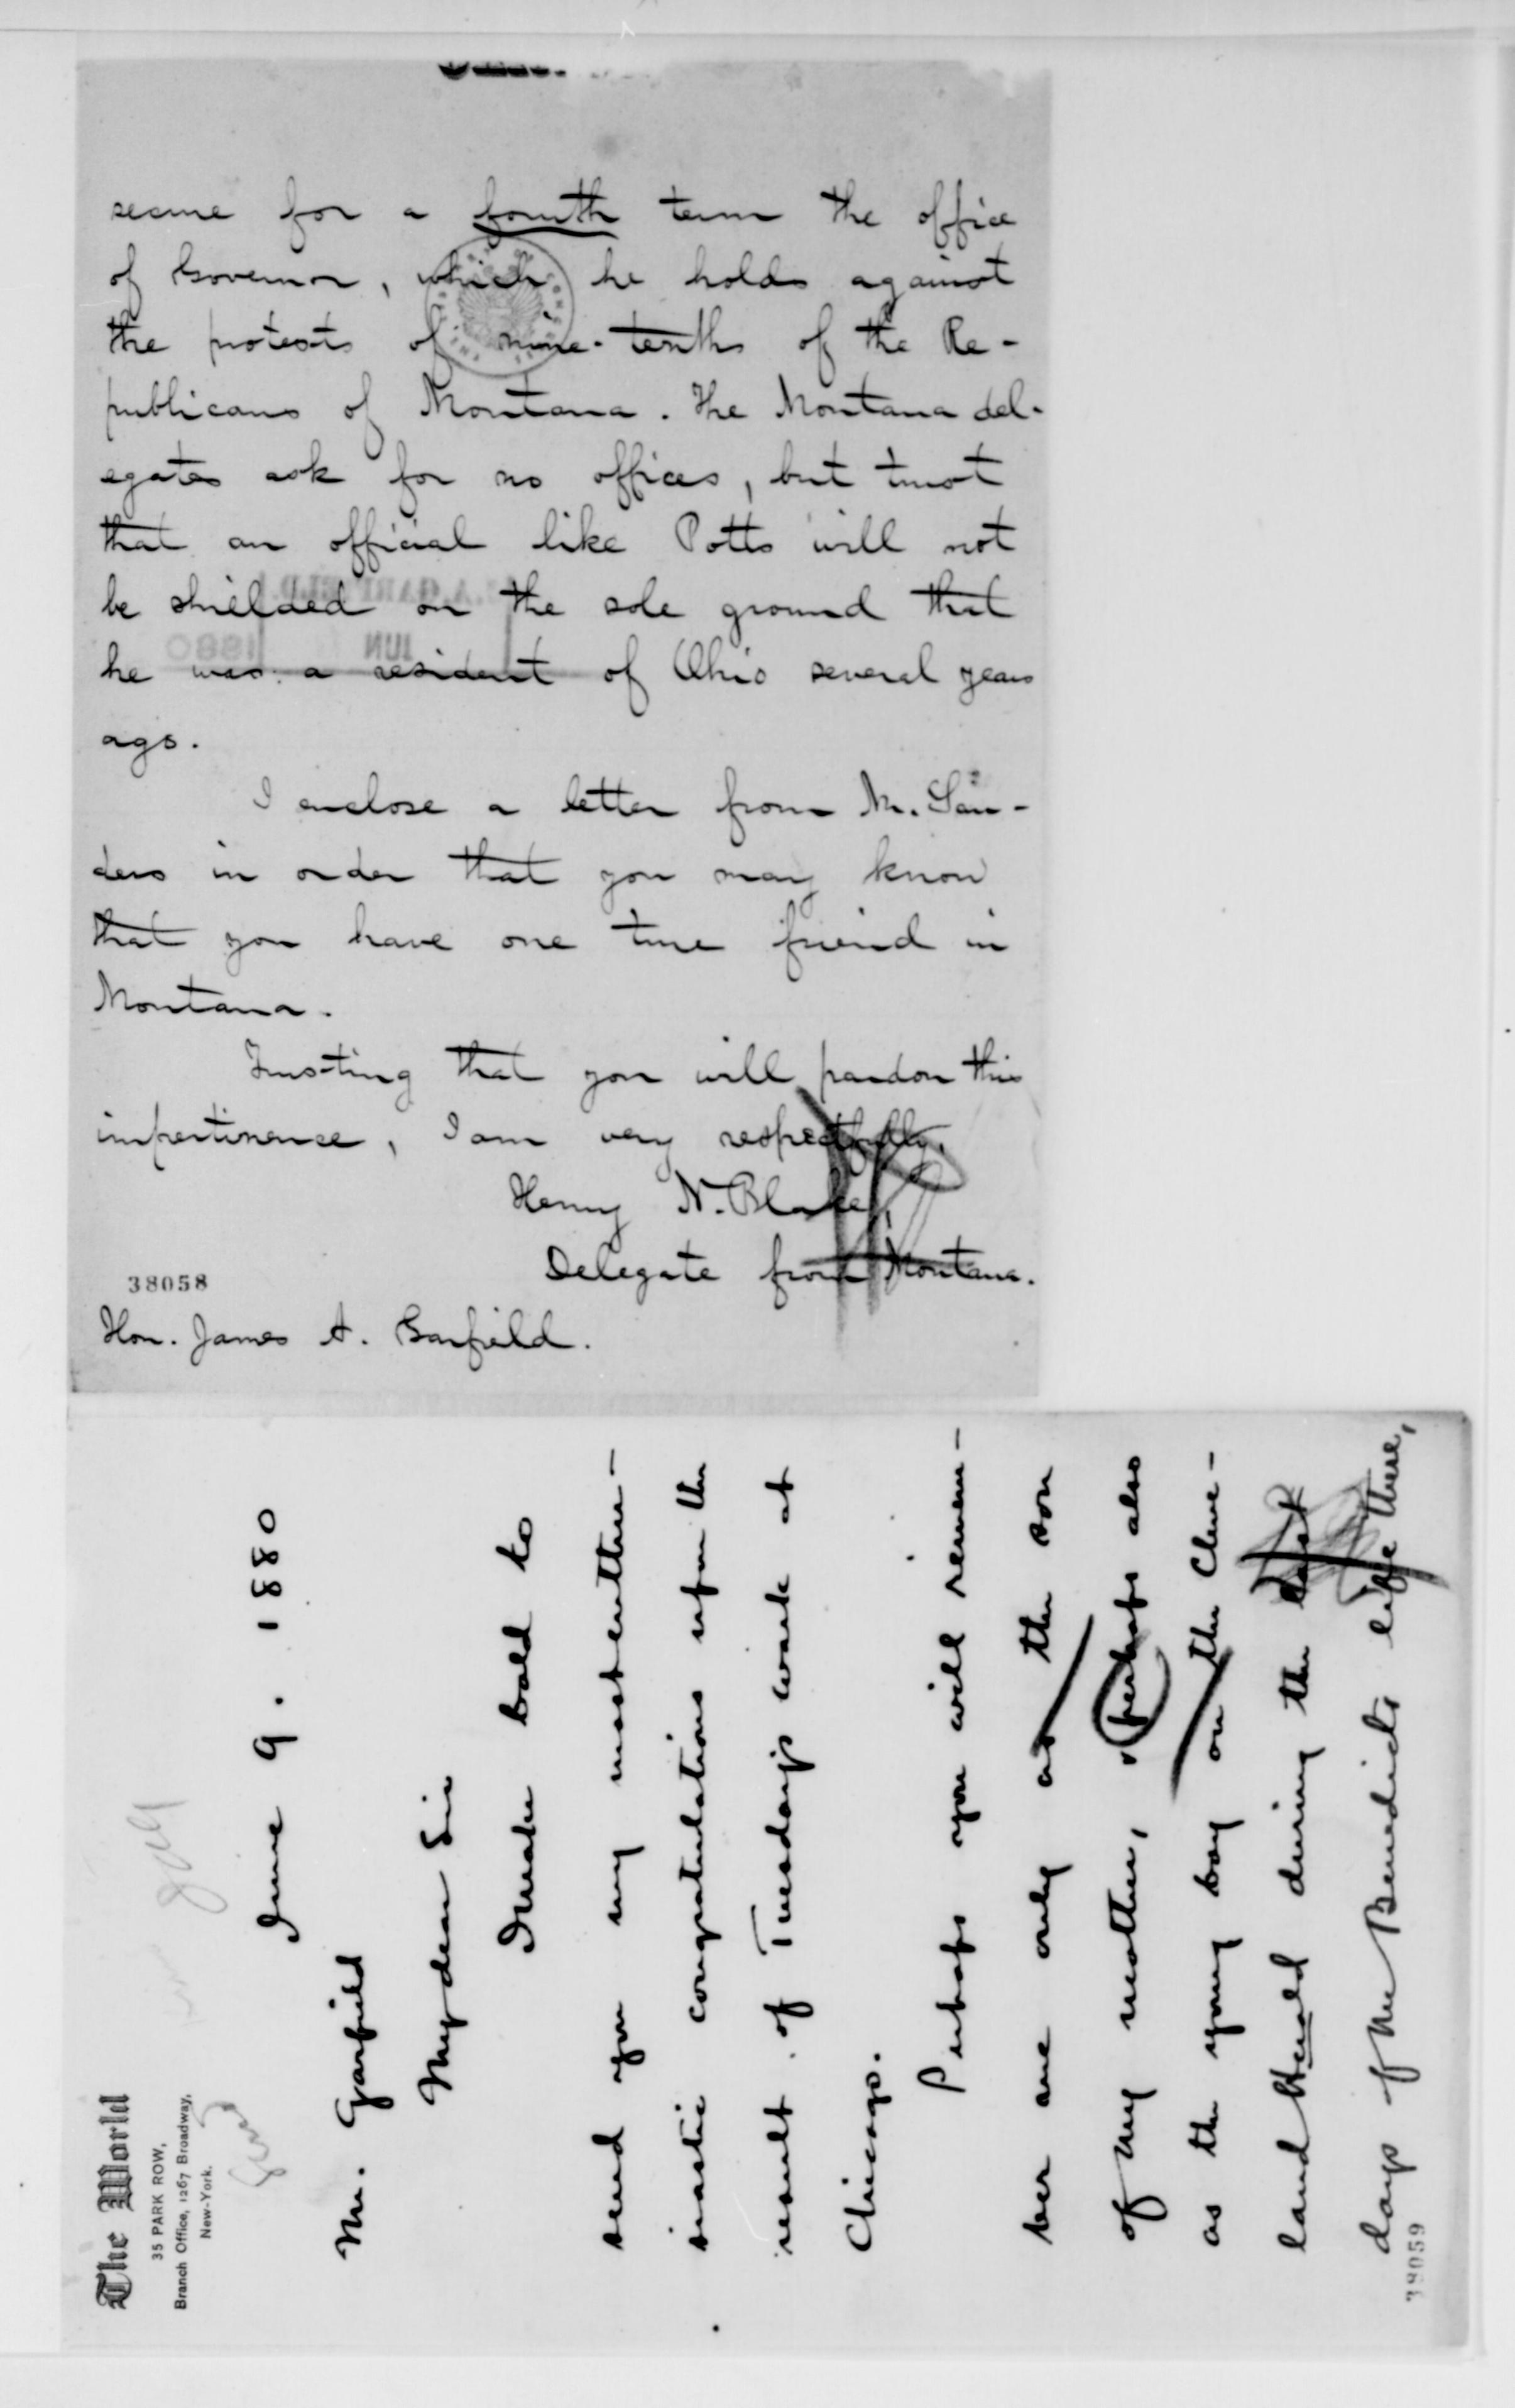 secure for a fourth term the office
of Governor, which he holds against
the protests of nine-tenths of the Re-
publicans of Montana. The Montana del-
egates ask for no offices, but trust
that an official like Potts will not
be shielded on the sole ground that
he was a resident of Ohio several years
ago.
I enclose a letter from Mr. San-
ders in order that you may know
that you have one true friend in
Montana.
Trusting that you will pardon this
impertinence, I am very respectfully,
Henry N. Blake,
Delegate from Montana.
38058
Hon. James A. Garfield.
J.A. GARFIELD
JUN 1880
The World
35 PARK ROW,
Branch Office, 1267 Broadway,
New-York.
June 9. 1880
Mr. Garfield
My dear Sir
I make bold to
send you my most enthu-
siastic congratulations upon the
result of Tuesday's work at
Chicago.
Perhaps you will remem-
ber me only as the son
of my mother, perhaps also
as the young boy on the Cleve-
land Herald during the last
days of Mr Benedict's life there,
38059